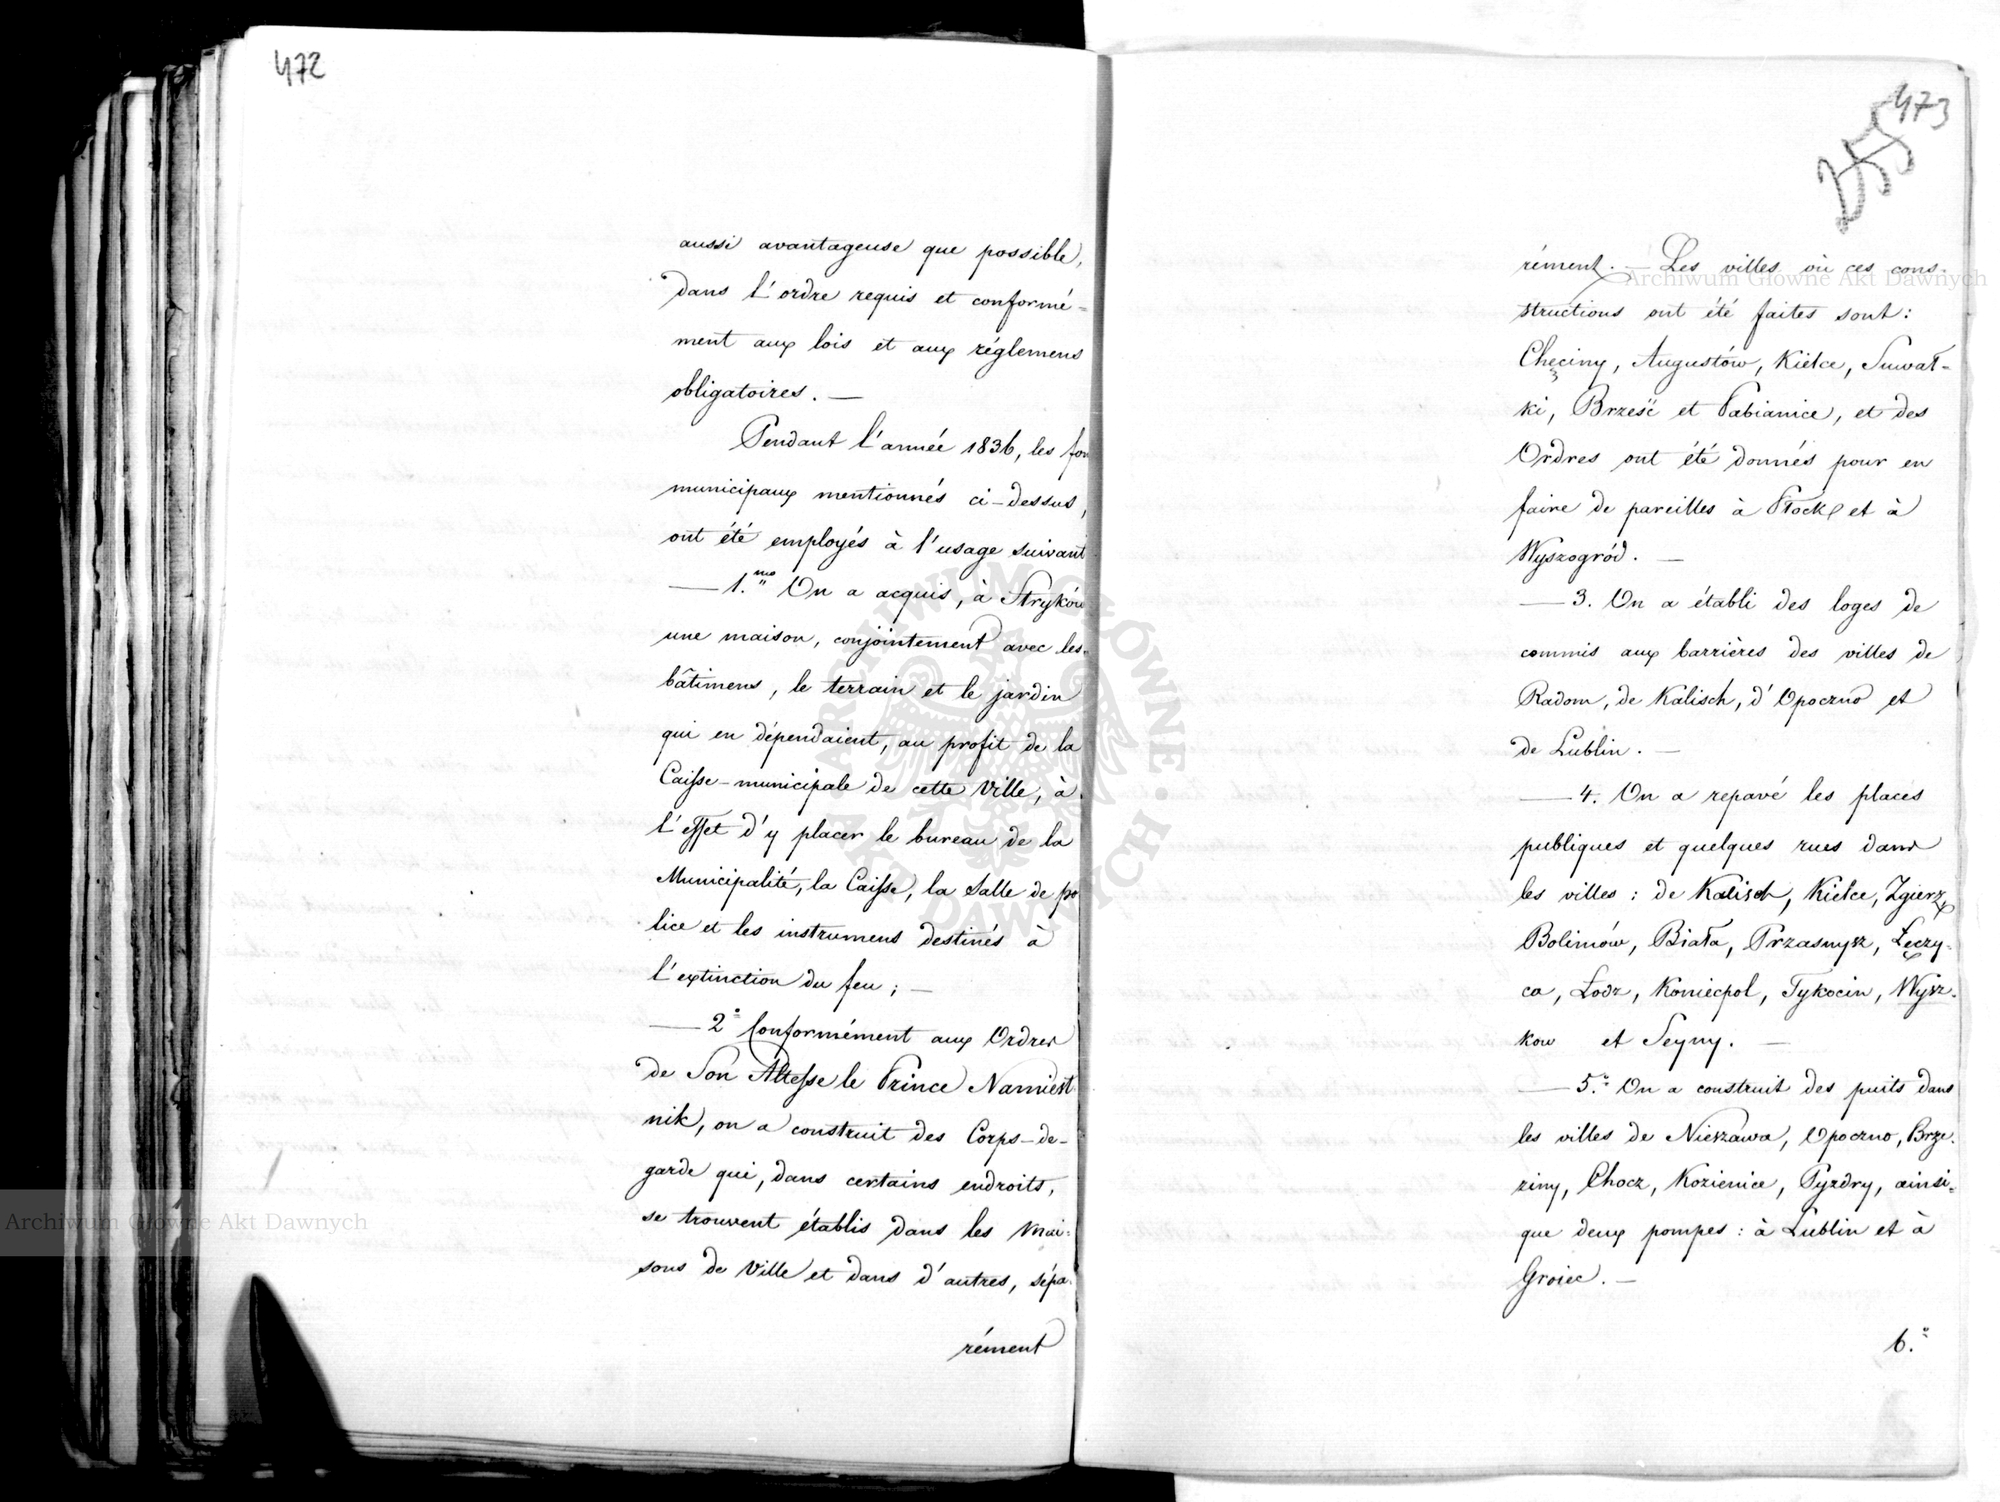 472
aussi avantageuse que possible,
dans l'ordre requis et conformé-
ment aux lois et aux réglemens
obligatoires. —
Pendant l'année 1836, les fon
municipaux mentionnés ci-dessus,
ont été employés à l'usage suivant
— 1.mo On a acquis, à Stryków
une maison, conjointement avec les
bâtimens, le terrain et le jardin
qui en dépendaient, au profit de la
Caisse-municipale de cette Ville, à
l'effet d'y placer le bureau de la
Municipalité, la Caisse, la Salle de po
lice et les instrumens destinés à
l'extinction du feu; —
— 2° Conformément aux Ordres
de Son Altesse le Prince Namiest
nik, on a construit des Corps-de-
garde qui, dans certains endroits,
se trouvent établis dans les Mai-
sons de Ville et dans d'autres, sépa-
rément
473
255
rément. — Les villes où ces cons-
structions ont été faites sont:
Chęciny, Augustów, Kielce, Suwał-
ki, Brześć et Pabianice, et des
Ordres ont été donnés pour en
faire de pareilles à Płock et à
Wyszogród. —
— 3. On a établi des loges de
commis aux barrières des villes de
Radom, de Kalisch, d'Opoczno et
de Lublin. —
— 4. On a repavé les places
publiques et quelques rues dans
les villes: de Kalisch, Kielce, Zgierz,
Bolimów, Biała, Przasnysz, Łęczy-
ca, Łodz, Koniecpol, Tykocin, Wysz-
kow et Seyny. —
— 5.° On a construit des puits dans
les villes de Nieszawa, Opoczno, Brze-
ziny, Chocz, Kozienice, Pyzdry, ainsi-
que deux pompes: à Lublin et à
Groiec. —
6.°
Archiwum Główne Akt Dawnych
Archiwum Główne Akt Dawnych
ARCHIWUM GŁÓWNE · AKT DAWNYCH ·